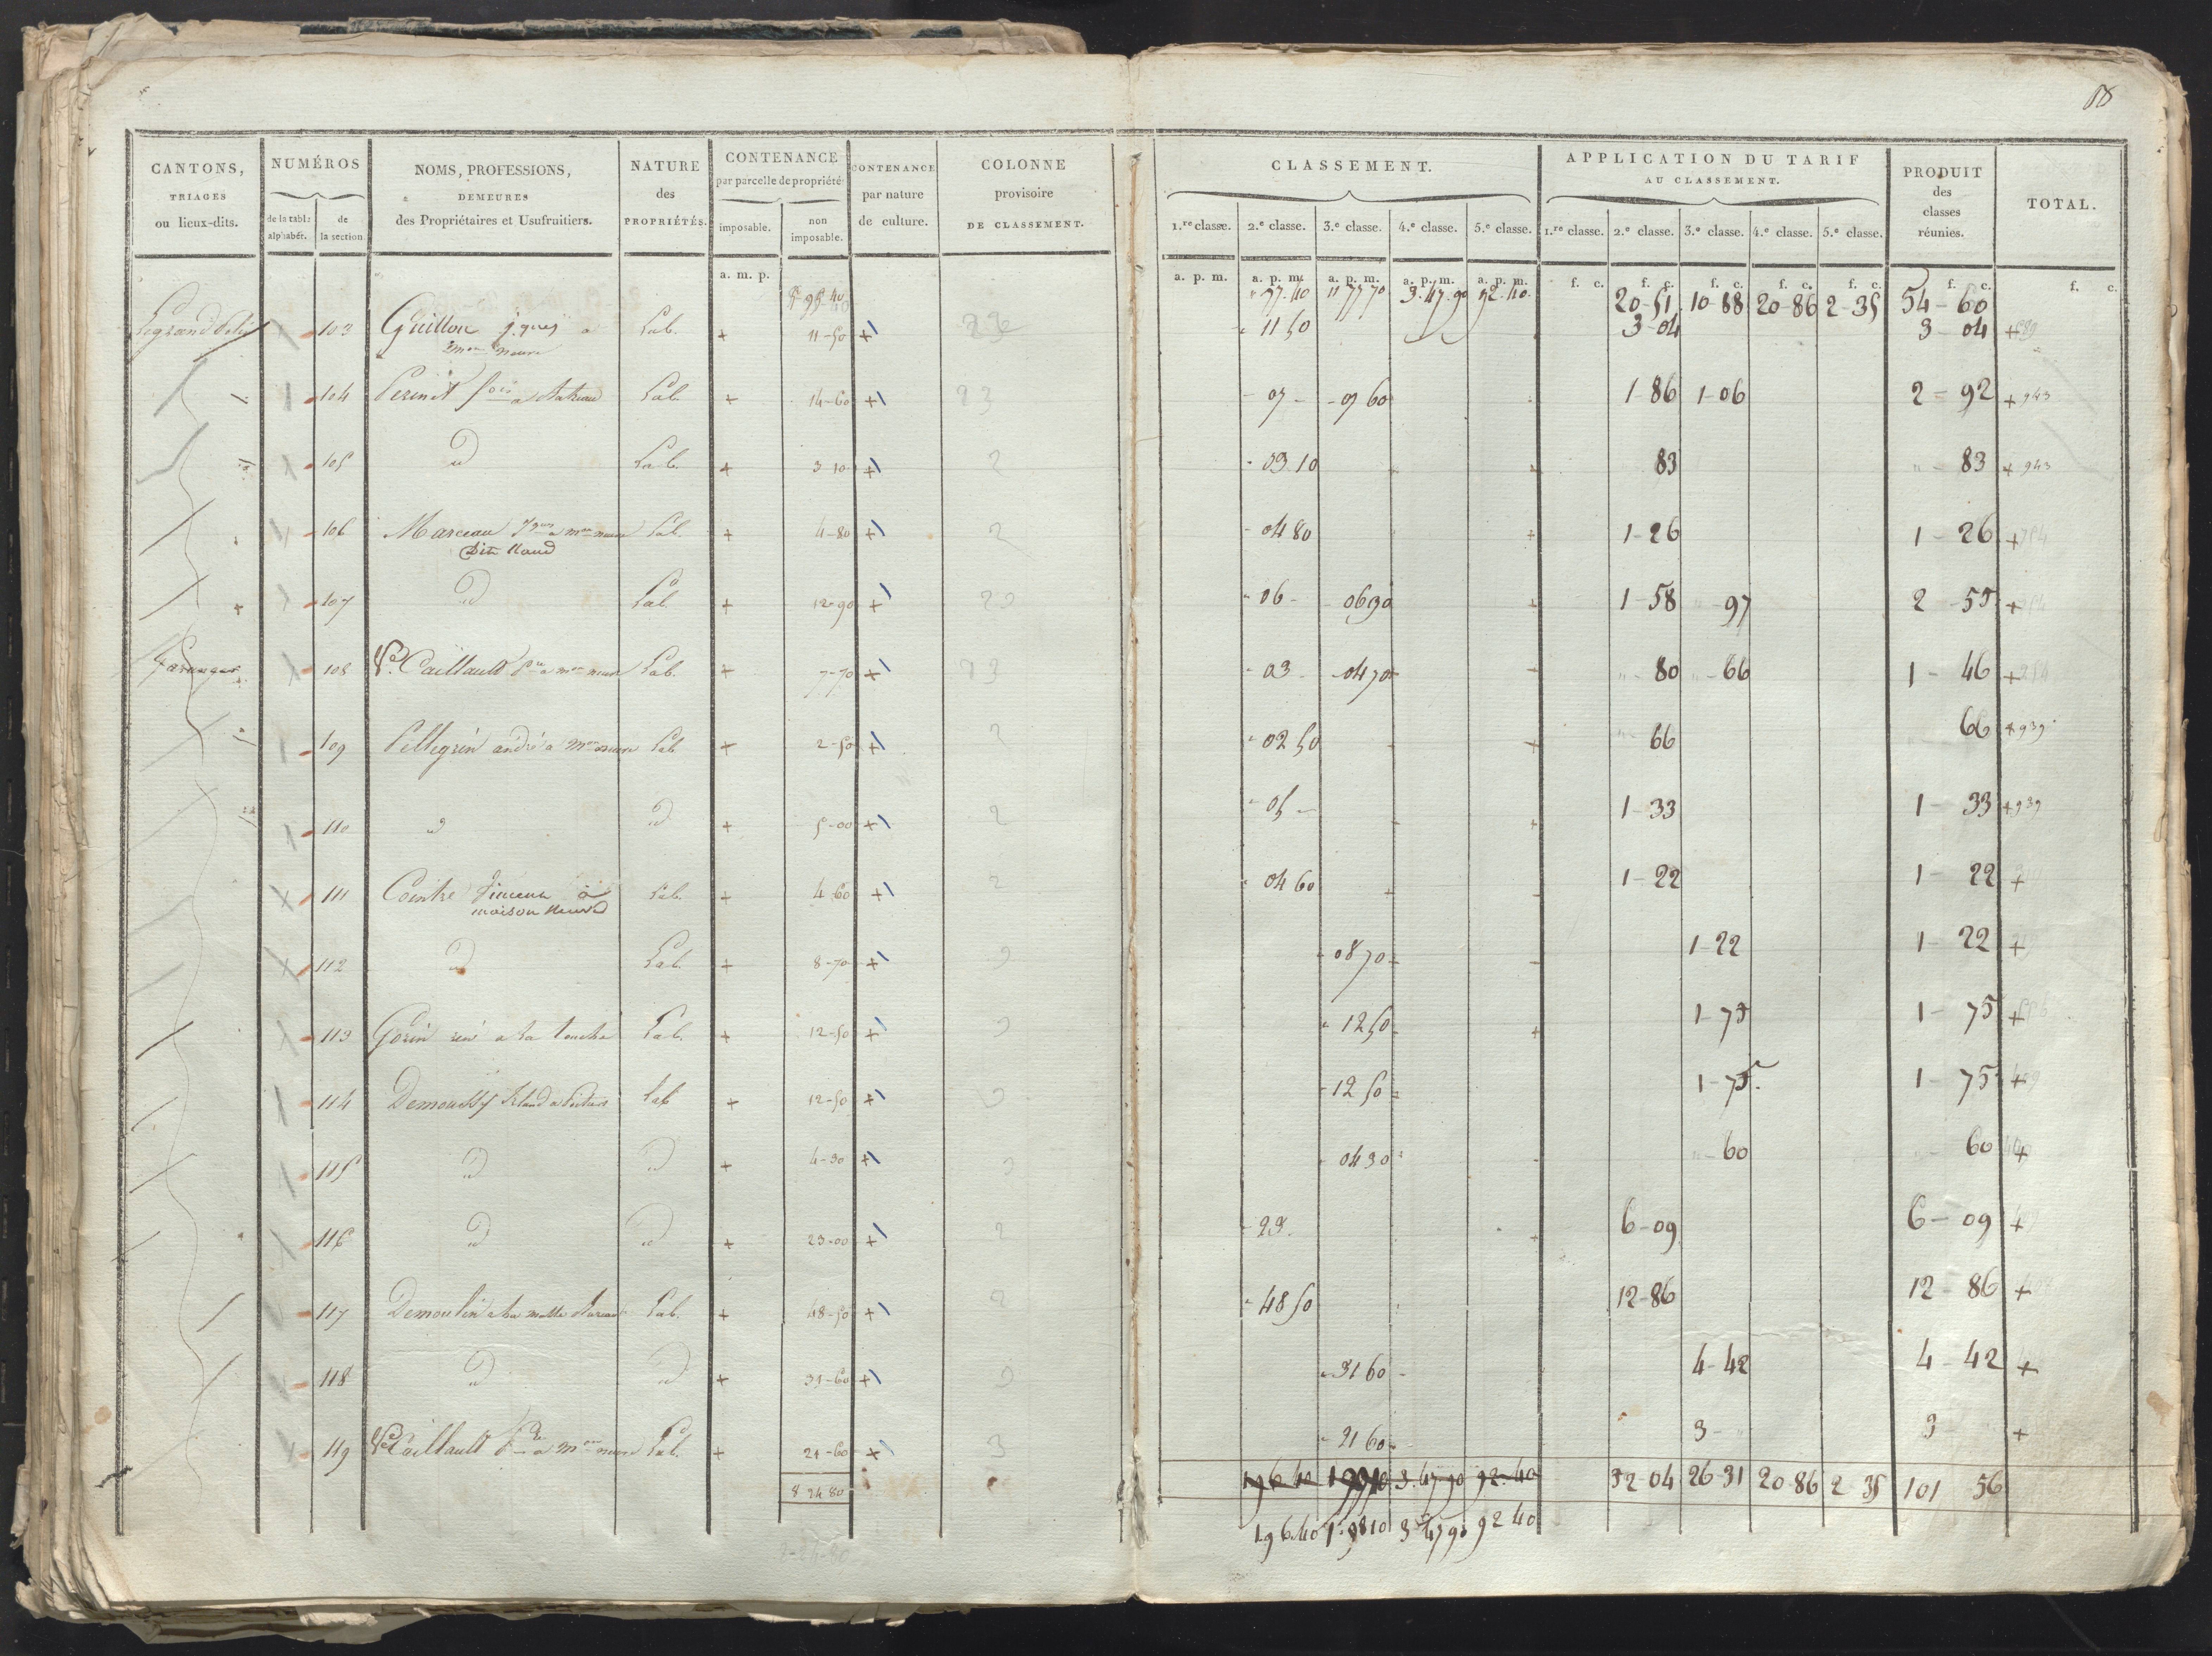 88
CANTONS, TRIAGES ou lieux-dits. NUMÉROS de la table alphabét. de la section NOMS, PROFESSIONS, DEMEURES des Propriétaires et Usufruitiers. NATURE des PROPRIÉTÉS. CONTENANCE par parcelle de propriété imposable. non imposable. CONTENANCE par nature de culture. COLONNE provisoire DE CLASSEMENT. CLASSEMENT. 1.re classe. 2.e classe. 3.e classe. 4.e classe. 5.e classe. APPLICATION DU TARIF AU CLASSEMENT. 1.re classe. 2.e classe. 3.e classe. 4.e classe. 5.e classe. PRODUIT des classes réunies. TOTAL.
a. m. p. a. p. m. a. p. m. a. p. m. a. p. m. a. p. m. f. c. f. c. f. c. f. c. f. c. f. c. f. c.
77.40 3.47.90 92.40 20-51 10-88 20-86 2-35 54-60
103 Guillon j.ques a Lab. + 11-50 + 11 50 3-04 3-04 +
mon neuve
104 Perinet a Lab + 14-60 + 23 07 - 07 60 1-86 1-06 2-92 + 943
105 d Lab. + 3 10 + 2 03.10 83 83 + 943
106 Marceau a mon neuve Lab. + 4-80 + 2 04 80 1-26 1-26 +
dit Naud
107 d Lab. + 12-90 + 23 06 - 06 90 1-58 97 2-55 +
108 Ve. Caillault a mon neuve Lab. + 7-70 + 23 03 - 04 70 80 66 1-46 +
109 Pellegrin andré a mon neuve Lab + 2-50 + 2 02 50 66 66 + 939
110 d d + 5-00 + 2 05 - 1-33 1-33 + 939
111 Cointre à Lab. + 4 60 + 2 04 60 1-22 1-22 +
maison neuve
112 d Lab. + 8-70 + 3 08 70 1-22 1-22 +
113 Gorin a la touche Lab. + 12-50 + 3 12 50 1-75 1-75 +
114 Demoussy Lab + 12-50 + 3 12 50 1-75 1-75 +
115 d d + 4-30 + 3 04 30 60 60 +
116 d d + 23-00 + 2 23. 6-09 6-09 +
117 Demoulin a la Lab. + 48-50 + 2 48 50 12-86 12-86 +
118 d d + 31-60 + 3 31 60 4-42 4-42 +
119 Ve Caillault a mon neuve Lab. + 21-60 + 3 21 60 3 - 3 +
8 24 80 1 96 40 3.47.90 92.40 52-04 26-31 20-86 2-35 101 56
1.96.40 1.9810 3 47 90 92 40